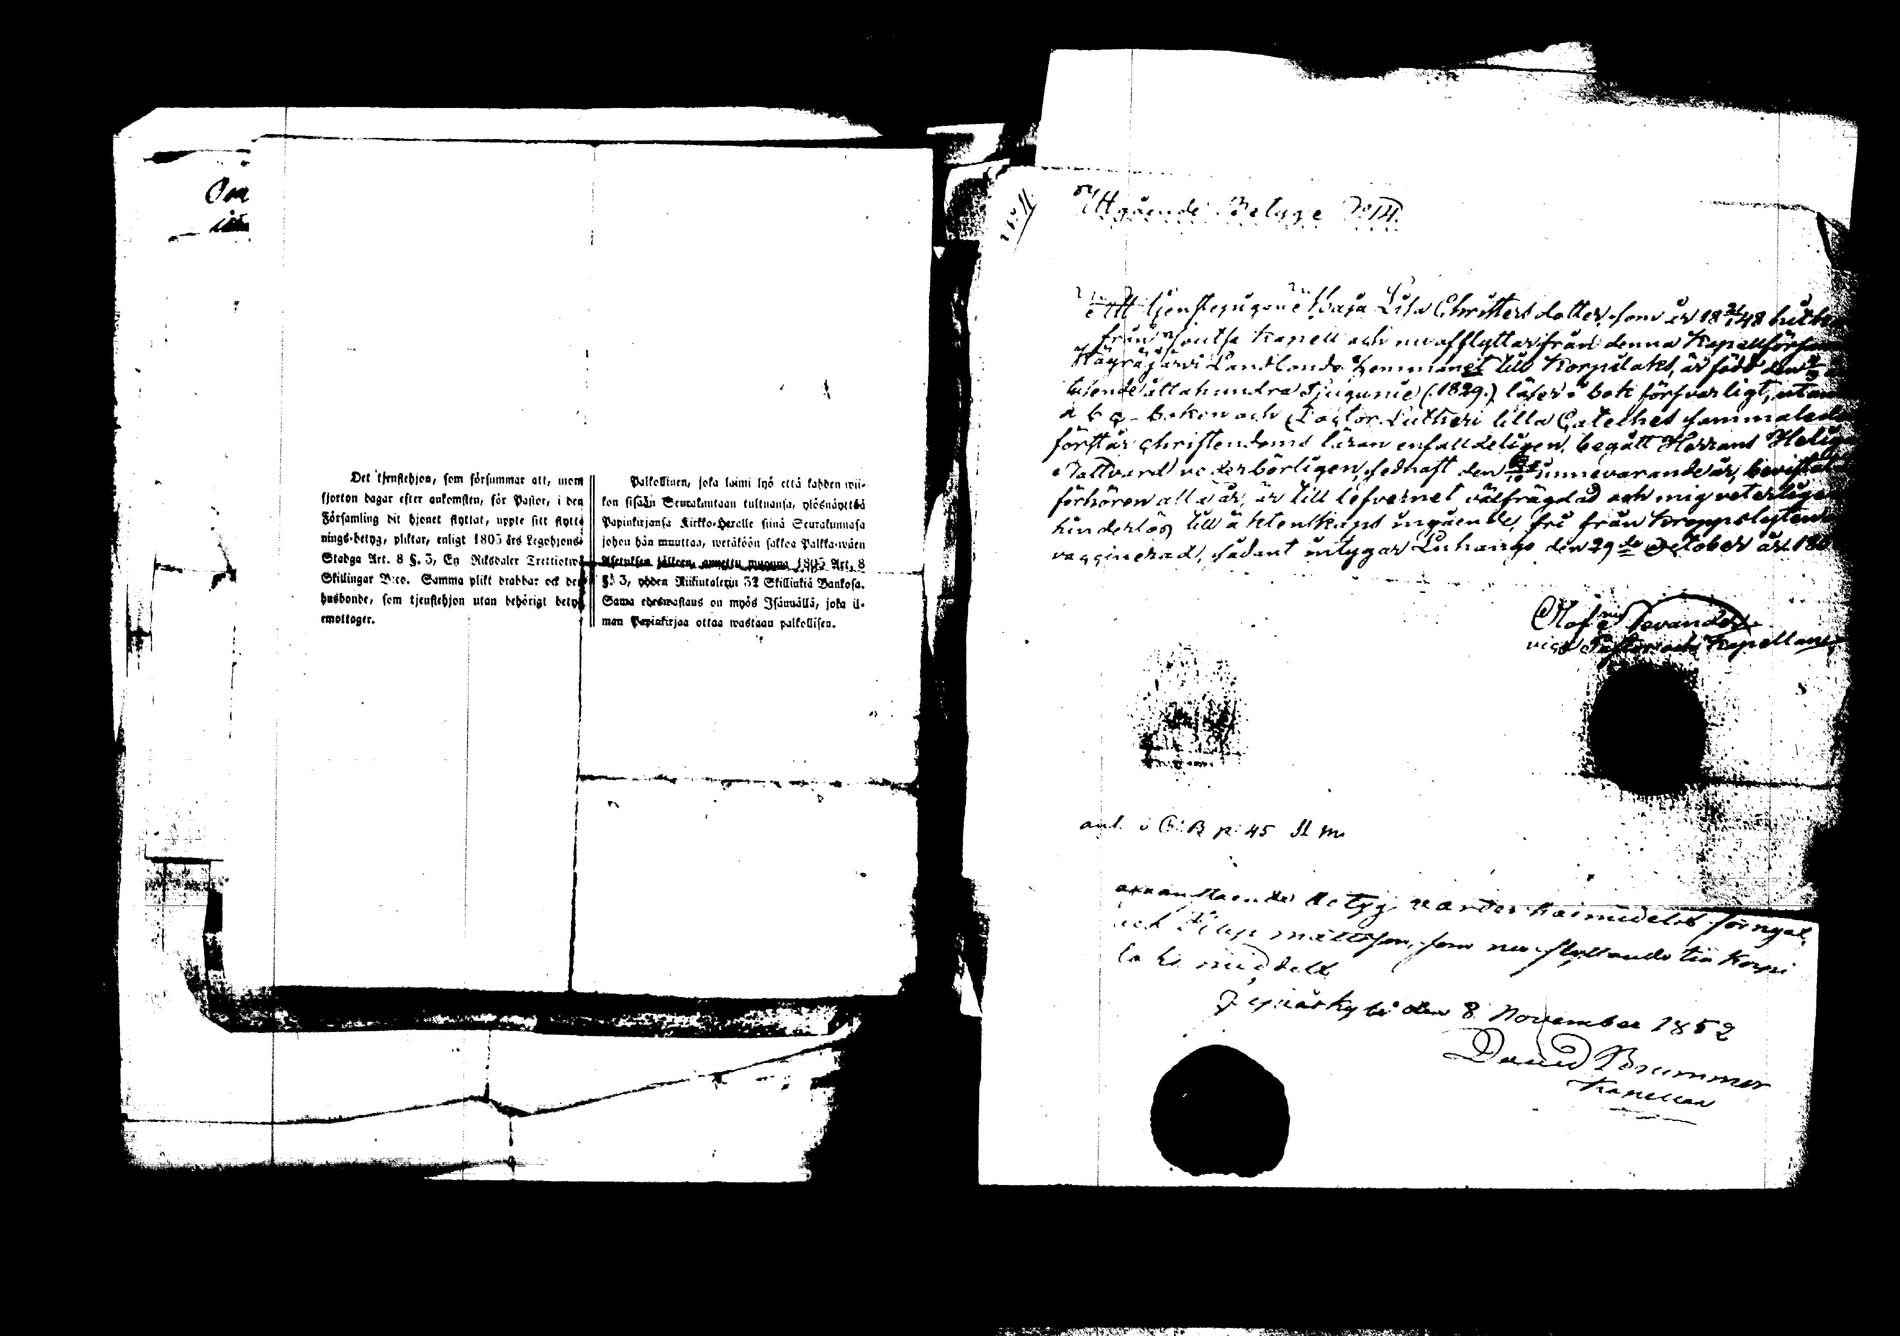 Det tjenstehjon, som försummar att, inom
fjorton dagar efter ankomsten, för Pastor, i den
Församling dit hjonet flyttat, uppte sitt flytt-
nings-betyg, pliktar, enligt 1805 års Legohjons-
Stadga Art. 8 §. 3, En Riksdaler Trettiotvå
Skillingar B:co. Samma plikt drabbar ock den
husbonde, som tjenstehjon utan behörigt betyg
emottager.
Palkollinen, joka laimi lyö että kahden wii-
kon sisään Seurakuntaan tultuansa, ylösnäyttää
Papinkirjansa Kirkko-Herralle siinä Seurakunnasa
johon hän muuttaa, wetäköön sakkoa Palkka-wäen
Asetuksen jälkeen, annettu wuonna 1805 Art. 8
§. 3, yhden Riikintalerin 32 Skillinkiä Bankosa.
Sama edeswastaus on myös Isännällä, joka il-
man Papinkirjaa ottaa wastaan palkollisen.
Utgående Betyge No 14.
Att tjenstepigan Lisa Christersdotter, som år 1848 hitkom
från Joutsa Kapell och nu afflyttar från denna Kapellförsam
Landbonde hemmanet till Korpilaks, är född den
tusende åttahundra tjugunie (1829.) läser i bok försvarligt, utan
a b c - boken och Doctor Lutheri lilla Cateches sammaledes
förstår Christendoms läran enfalldeligen, begått Herrans Helige
Nattvard vederbörligen, sednast den innevarande år, bevistat
förhören alla år, är till lefvernet välfrägdad och mig veterligen
hinderlös till äktenskaps ingående, fri från kroppslyten
vaccinerad, sådant intygar Luhango den 29de October år 18
Olof Levander
vice Pastor och Kapellan
ant. i C: B p: 45
betyg varder
som nu flyttande till Korpi
laks meddelt
den 8 November 1852
David Brummer
Kapellan